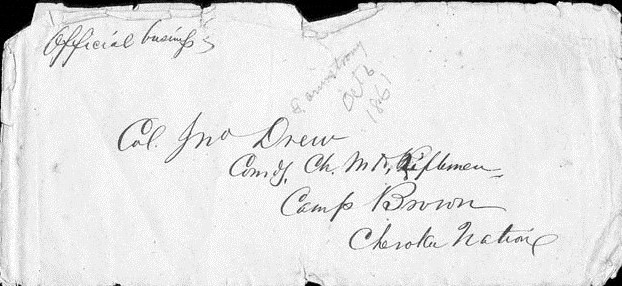 Official business
E. Armstrong
Oct 6
1861
Col. Jno Drew
Comdg. Ch. Md. Riflemen
Camp Brown
Cherokee Nation